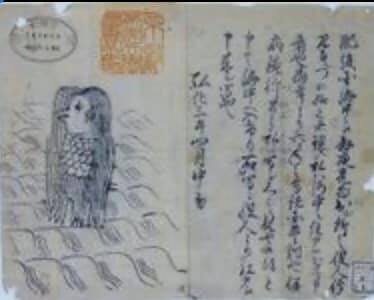 肥後国海中え毎夜光物出ル所之役人行
見るニづの如く者現ス私ハ海中ニ住アマビヱト申
者也當年より六ケ年之間諸国豊作也併
病流行早々私シ写シ人々ニ見せ候得と
申て海中へ入けり右ハ写シ役人より江戸え
申来ル写也
弘化三年四月中旬